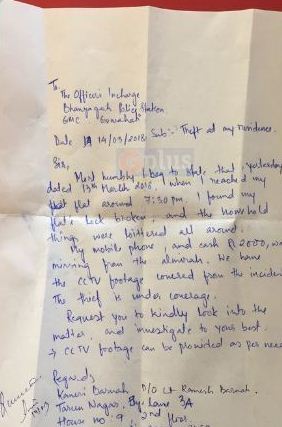 To
The Officer Incharge
Bhangagarh Police Station
GMC Guwahati
Date 14/03/2018 Sub:- Theft at my residence.
Sir,
Most humbly I beg to state that, yesterday
dated 13th March 2018, when I reached my
flat around 7:30 pm. I found my
flat's lock broken, and the household
things were littered all around.
My mobile phone, and cash R 2000, was
missing from the almirah. We have
the CCTV footage covered from the incident
The thief is under coverage.
Request you to kindly look into the
matter, and investigate to your best.
→ CCTV footage can be provided as per need
Regards
Barnali D/O Lt Ramesh Barnali.
Tarun Nagar, Bye Lane 3A
House no. 9, 2nd floor
plus